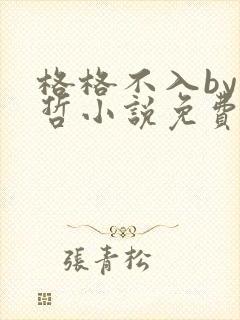 格格不入by
哲小說免費
張青松